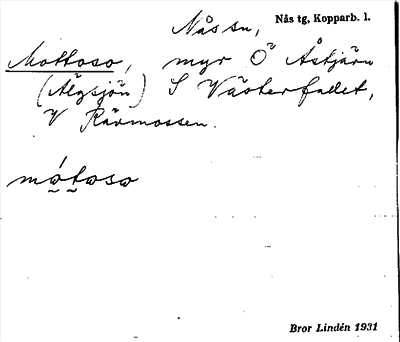 Nås sn, Nås tg, Kopparb. l.
Mottoso, myr Ö Åstjärn
(Älgsjön) S Västerfallet,
V Rävmossen.
mótoso
Bror Lindén 1931